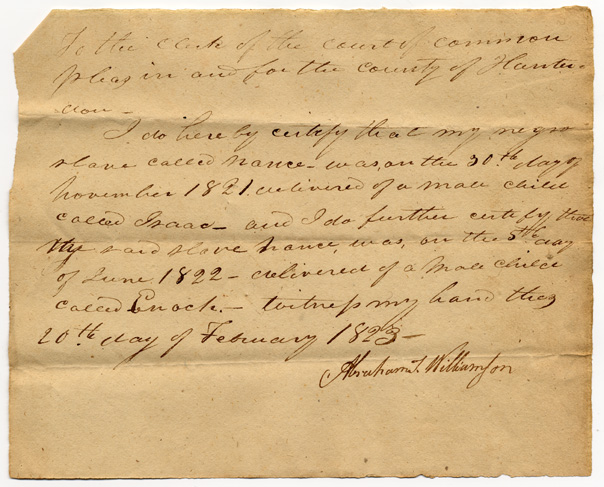 To the Clerk of the court of common
pleas in and for the county of Hunter-
don –
I do hereby certify that my negro
slave called nance – was, on the 30.th day of
november 1821 delivered of a male child
called Isaac – and I do further certify that
my said slave nance, was, on the 5th day
of June 1822 – delivered of a male child
called Enoch. – witness my hand this
20th day of February 1823 –
Abraham T. Williamson